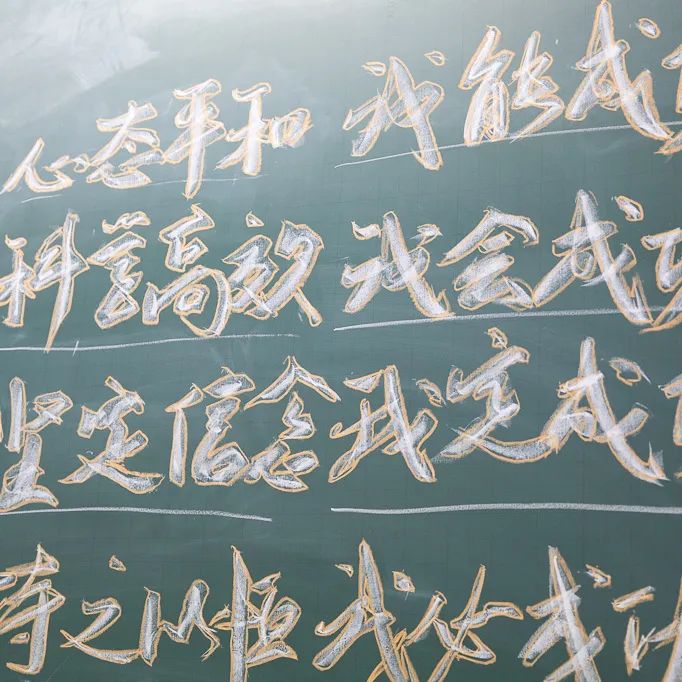 心态平和 我能成
科学高效 我会成
坚定信念 我定成
持之以恒 我